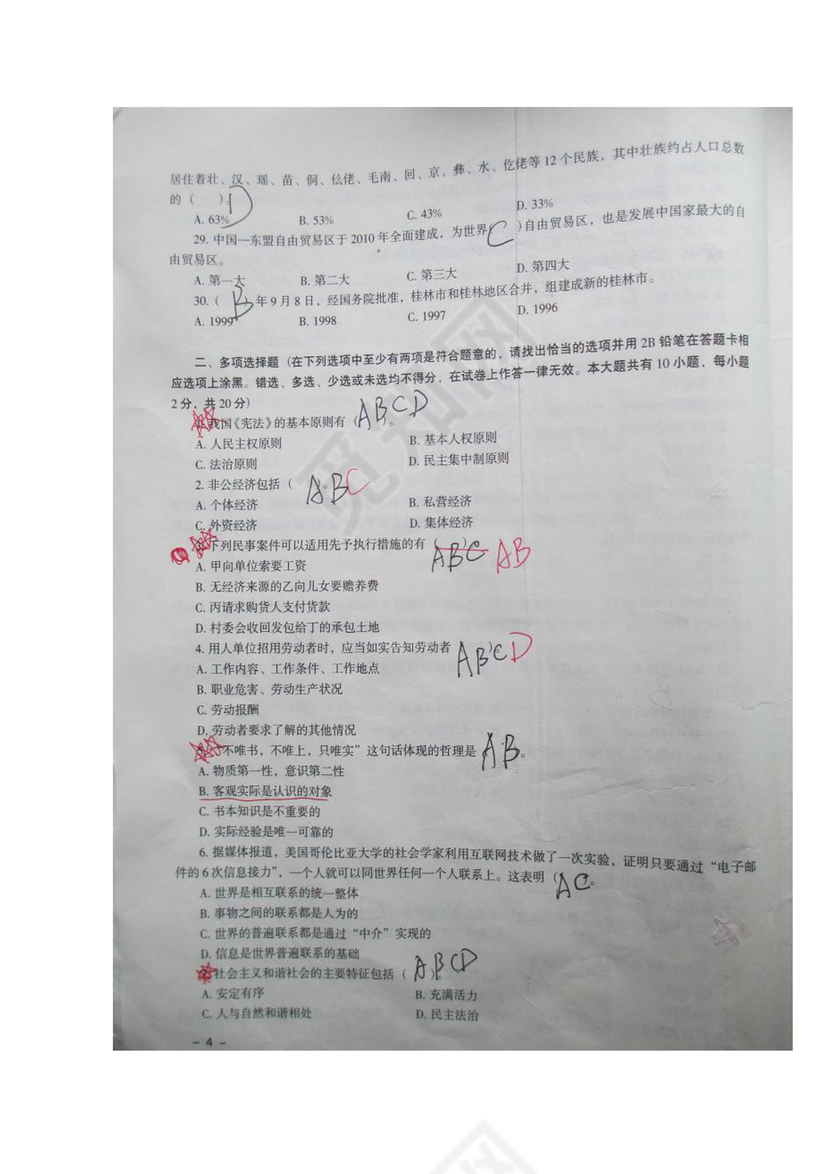 居住着壮、汉、瑶、苗、侗、仫佬、毛南、回、京、彝、水、仡佬等 12 个民族，其中壮族约占人口总数
的（ D ）。
A. 63% B. 53% C. 43% D. 33%
29. 中国—东盟自由贸易区于 2010 年全面建成，为世界（ C ）自由贸易区，也是发展中国家最大的自
由贸易区。
A. 第一大 B. 第二大 C. 第三大 D. 第四大
30.（ B ）年 9 月 8 日，经国务院批准，桂林市和桂林地区合并，组建成新的桂林市。
A. 1999 B. 1998 C. 1997 D. 1996
二、多项选择题（在下列选项中至少有两项是符合题意的，请找出恰当的选项并用 2B 铅笔在答题卡相
应选项上涂黑。错选、多选、少选或未选均不得分，在试卷上作答一律无效。本大题共有 10 小题，每小题
2 分，共 20 分）
我国《宪法》的基本原则有（ ABCD ）。
A. 人民主权原则 B. 基本人权原则
C. 法治原则 D. 民主集中制原则
2. 非公经济包括（ ABC
A. 个体经济 B. 私营经济
C. 外资经济 D. 集体经济
下列民事案件可以适用先予执行措施的有（ ABC ） AB
A. 甲向单位索要工资
B. 无经济来源的乙向儿女要赡养费
C. 丙请求购货人支付货款
D. 村委会收回发包给丁的承包土地
4. 用人单位招用劳动者时，应当如实告知劳动者 ABCD
A. 工作内容、工作条件、工作地点
B. 职业危害、劳动生产状况
C. 劳动报酬
D. 劳动者要求了解的其他情况
“不唯书，不唯上，只唯实”这句话体现的哲理是 AB 。
A. 物质第一性，意识第二性
B. 客观实际是认识的对象
C. 书本知识是不重要的
D. 实际经验是唯一可靠的
6. 据媒体报道，美国哥伦比亚大学的社会学家利用互联网技术做了一次实验，证明只要通过“电子邮
件的 6 次信息接力”，一个人就可以同世界任何一个人联系上。这表明（ AC 。
A. 世界是相互联系的统一整体
B. 事物之间的联系都是人为的
C. 世界的普遍联系都是通过“中介”实现的
D. 信息是世界普遍联系的基础
社会主义和谐社会的主要特征包括（ ABCD
A. 安定有序 B. 充满活力
C. 人与自然和谐相处 D. 民主法治
- 4 -
觅知网